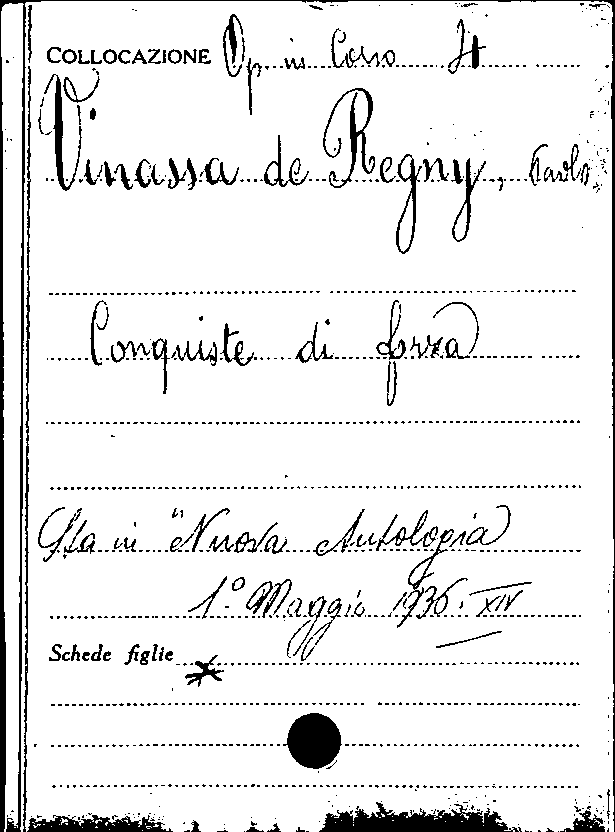 COLLOCAZIONE Op. in Corso 74
Vinassa de Regny, Paolo
Conquiste di forza
Sta in "Nuova Antologia
1° Maggio 1936. XIV
Schede figlie